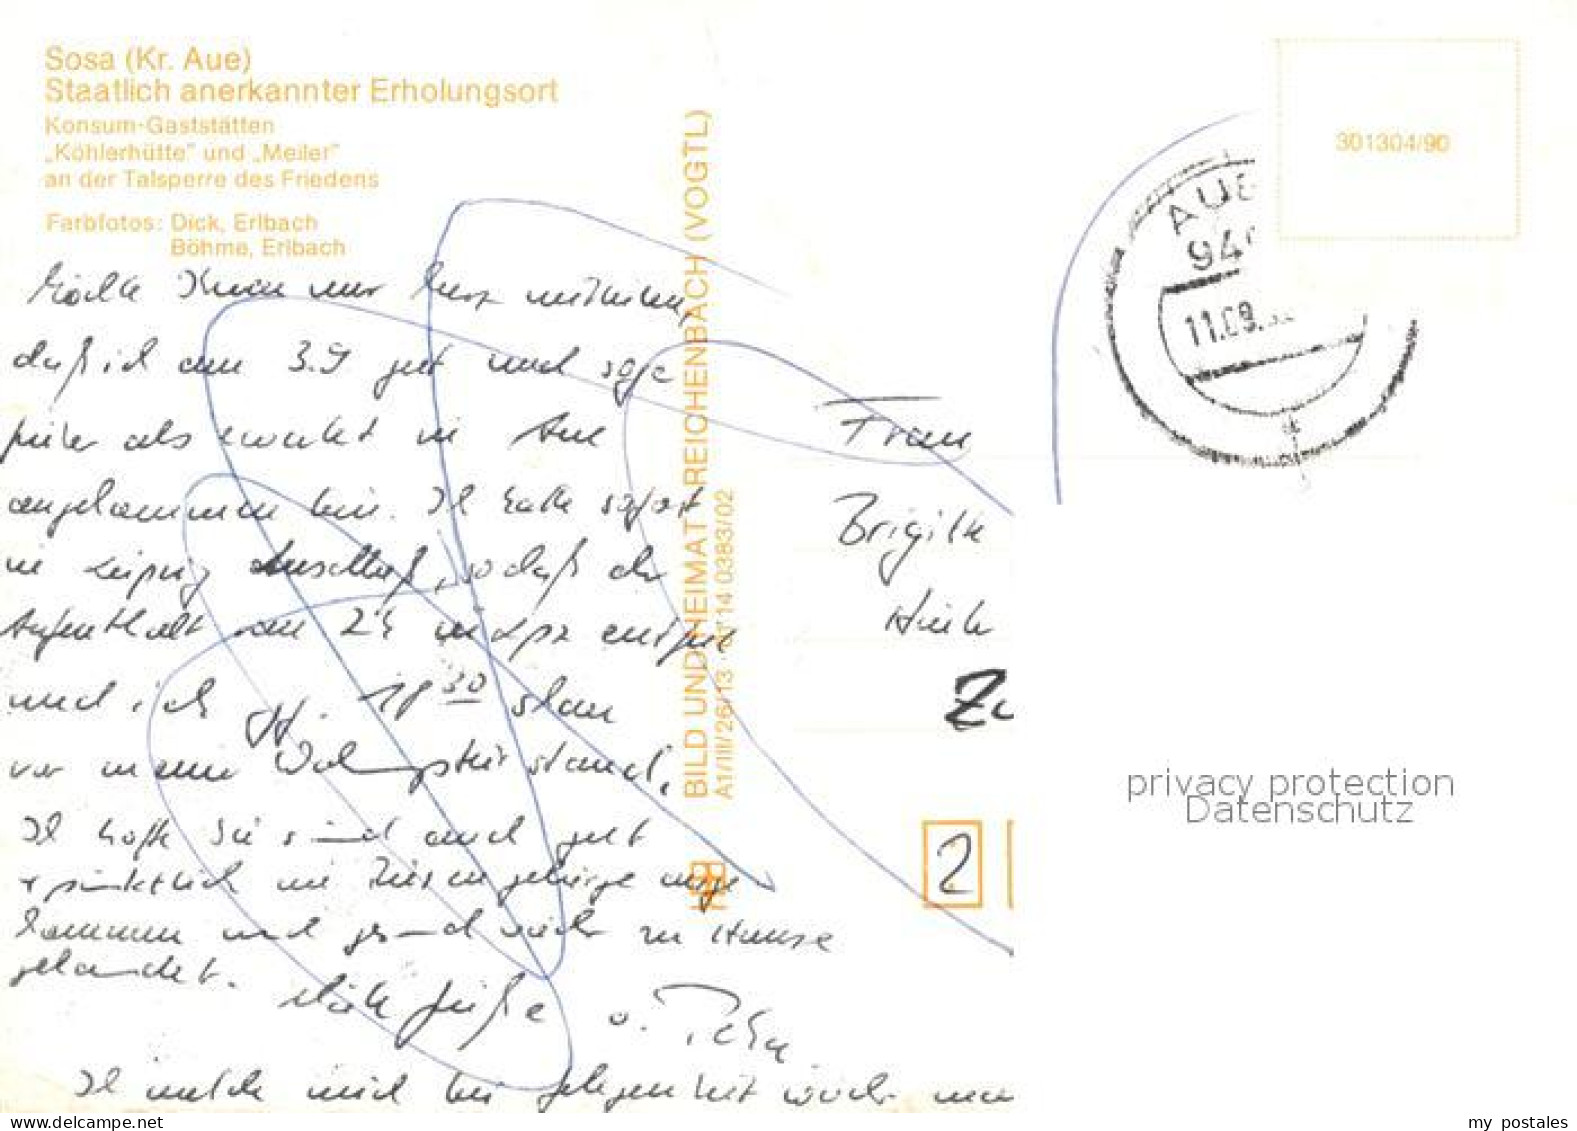 Sosa (Kr. Aue)
Staatlich anerkannter Erholungsort
Konsum-Gaststätten
„Köhlerhütte" und „Meiler"
an der Talsperre des Friedens
Farbfotos: Dick, Erlbach
Böhme, Erlbach
Möchte Ihnen nur kurz mitteilen,
daß ich am 3.9 gut und sogar
früher als erwartet in Aue
angekommen bin. Ich hatte sofort
in Leipzig Anschluß, sodaß der
Aufenthalt von 2 in Lpz entfiel
und ich 18 30 schon
vor meiner Wohnungstür stand.
Ich hoffe Sie sind auch gut
+ pünktlich im Riesengebirge ange
kommen und gesund wieder zu Hause
gelandet.
Viele Grüße
Ich melde mich bei Gelegenheit wieder
BILD UND HEIMAT REICHENBACH (VOGTL)
A1/III/26/13 14 0383/02
301304/90
AUE
940
11.09.
Frau
Brigitte
2
privacy protection
Datenschutz
my postales